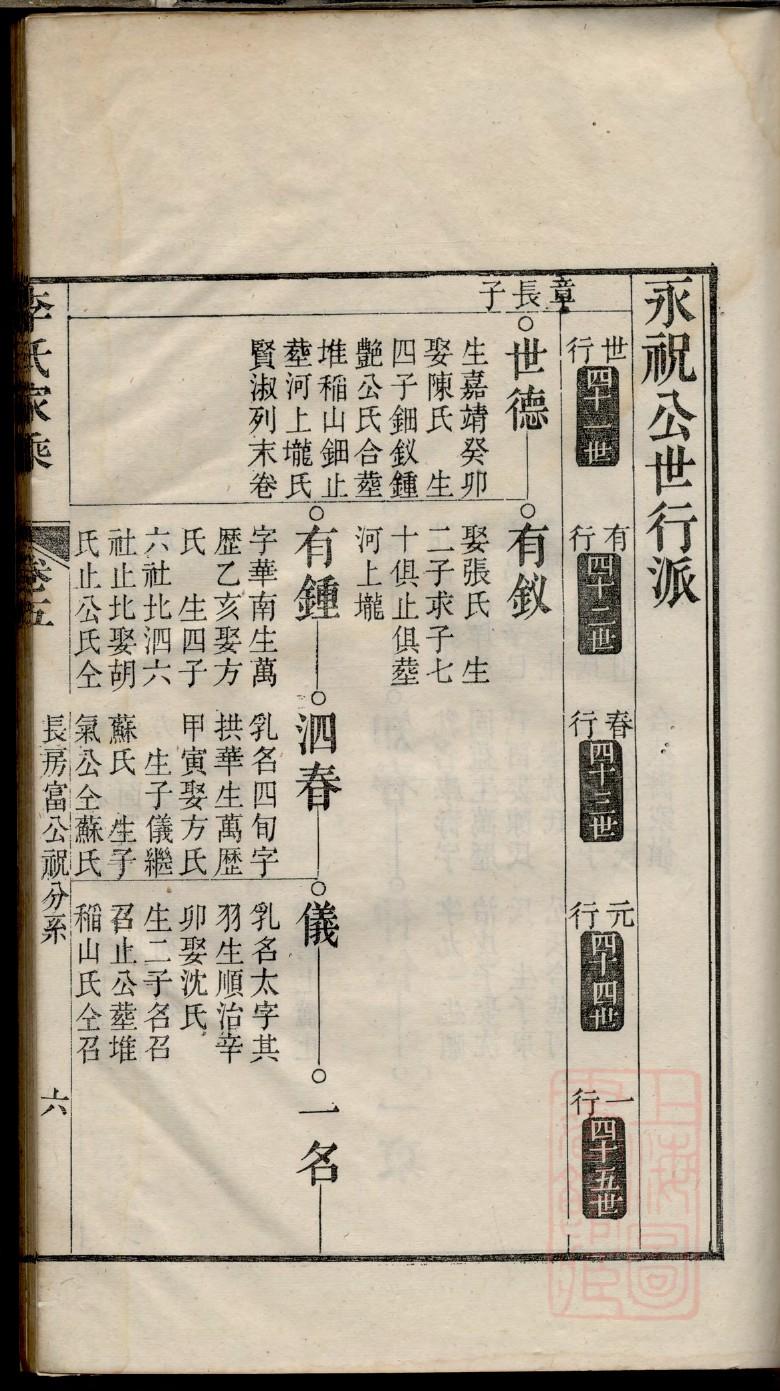 永祝公世行派
世行 四十一世
有行 四十二世
春行 四十三世
元行 四十四世
一行 四十五世
章長子
世德
生嘉靖癸卯
娶陳氏 生
四子鈿釵鍾
艷公氏合塟
堆稲山鈿止
塟河上壠氏
賢淑列末卷
有釵
娶張氏 生
二子求子七
十俱止俱塟
河上壠
有鍾
字華南生萬
歴乙亥娶方
氏 生四子
六社比泗六
社止比娶胡
氏止公氏仝
泗春
乳名四旬字
拱華生萬歴
甲寅娶方氏
生子儀繼
蘇氏 生子
氣公仝蘇氏
儀
乳名太字其
羽生順治辛
卯娶沈氏
生二子名召
召止公塟堆
稲山氏仝召
一名
李氏家乘
卷五
長房富公祝分系
六
上海圖